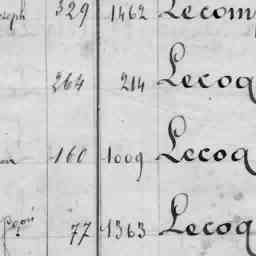 seph 329 1462 Lecom
264 214 Lecoq
160 1009 Lecoq
77 1363 Lecoq